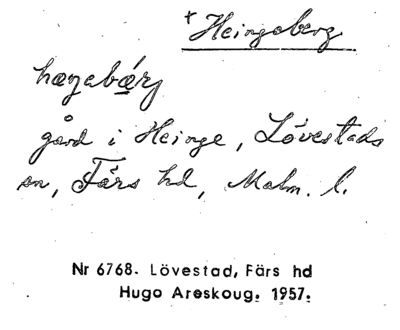 + Heingeberg
hæŋabǽrj
gård i Heinge, Lövestads
sn, Färs hd, Malm. l.
Nr 6768. Lövestad, Färs hd
Hugo Areskoug. 1957.